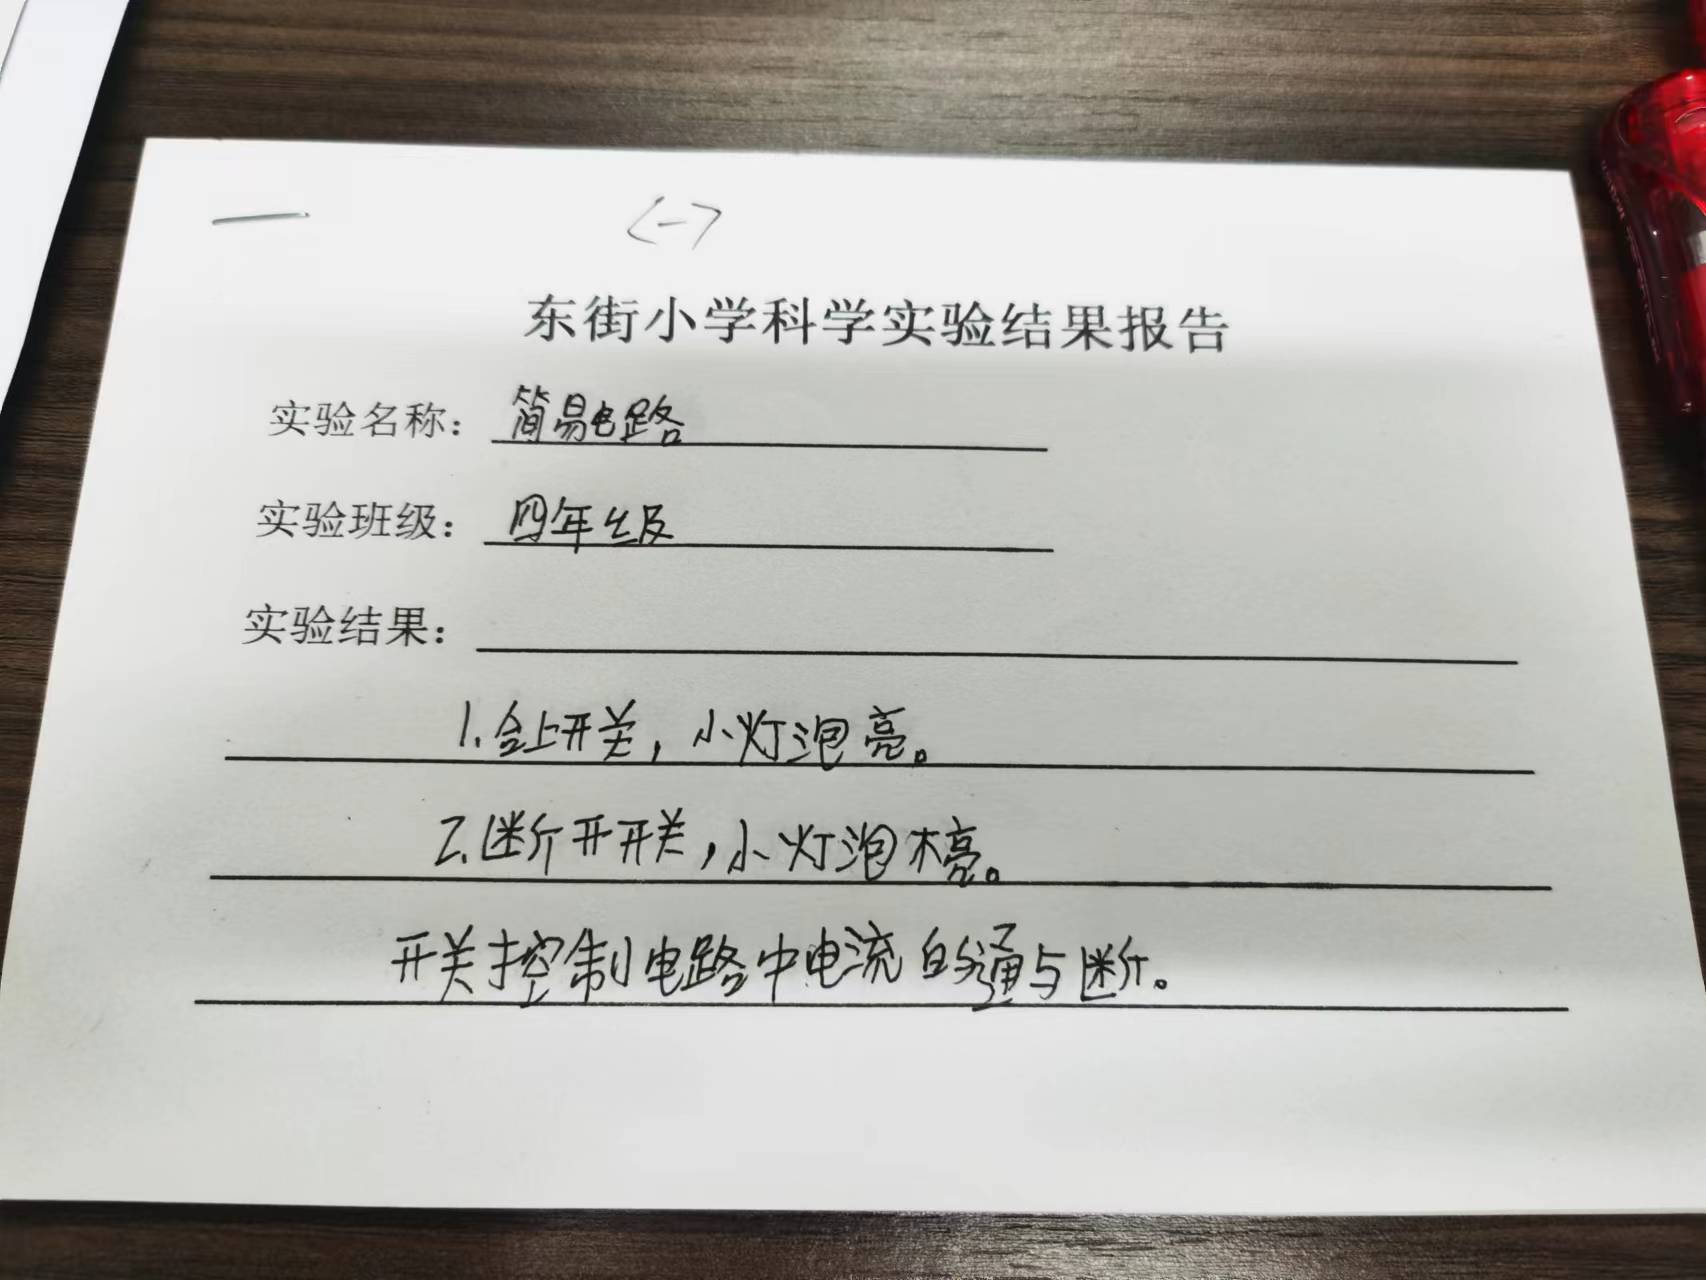 (一)
东街小学科学实验结果报告
实验名称：简易电路
实验班级：四年级
实验结果：
1.合上开关，小灯泡亮。
2.断开开关，小灯泡不亮。
开关控制电路中电流的通与断。